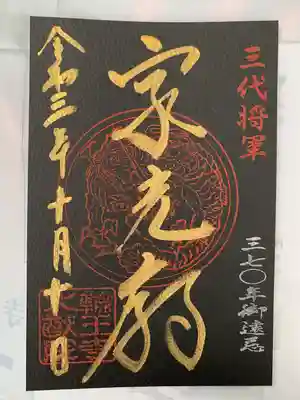 三代将軍
三七〇年御遠忌
家光廟
令和三年十月十日
輪王寺